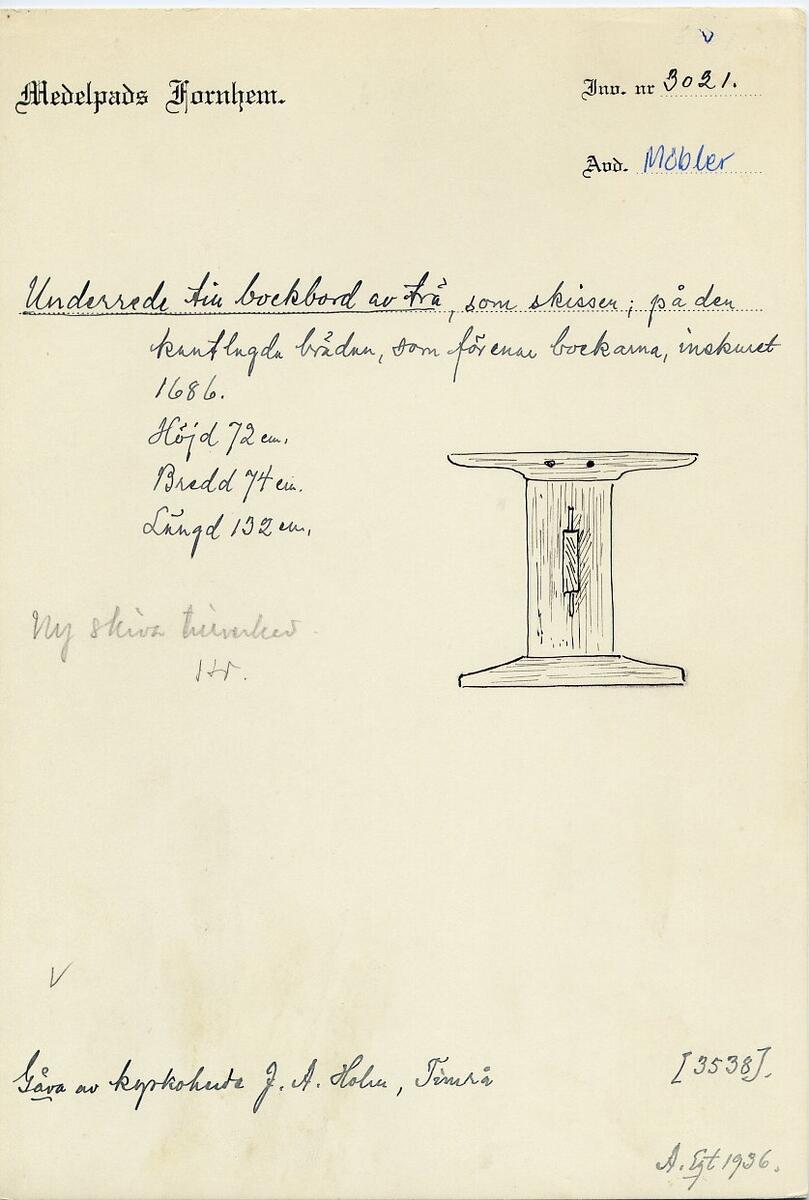 Medelpads Fornhem.
Inv. nr 3021.
Avd. Möbler
Underrede till bockbord av trä, som skissen; på den
kantlagda brädan, som förenar bockarna, inskuret
1686.
Höjd 72 cm.
Bredd 74 cm.
Längd 132 cm.
Ny skiva tillverkad.
Gåva av kyrkoherde J. A. Holm, Timrå
[3538].
A. Egt 1936.